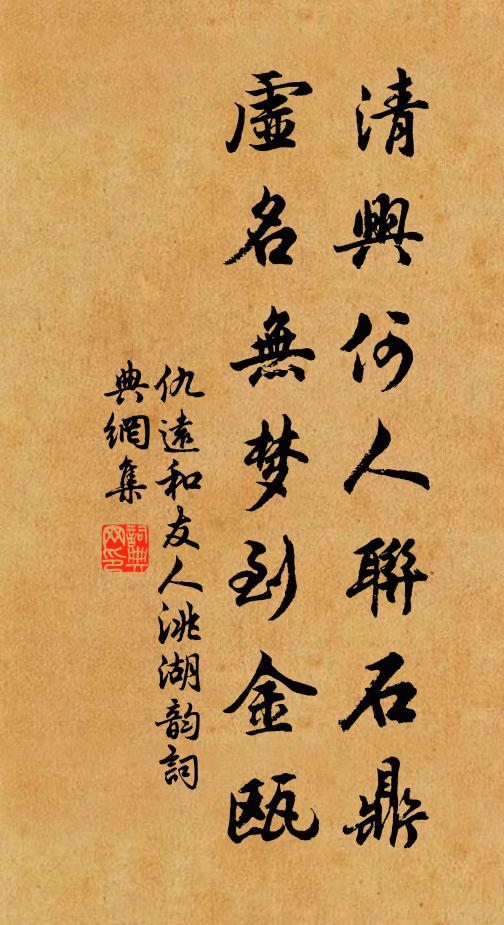 清興何人聯石鼎
虛名無梦到金甌
仇遠和友人洮湖韵詞
典網集
詞典
网印